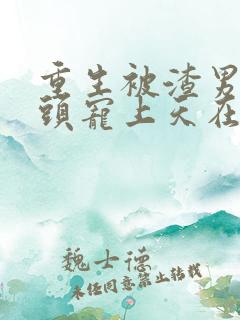 重生被渣男
頭寵上天在
魏士德
未任同意禁止转载